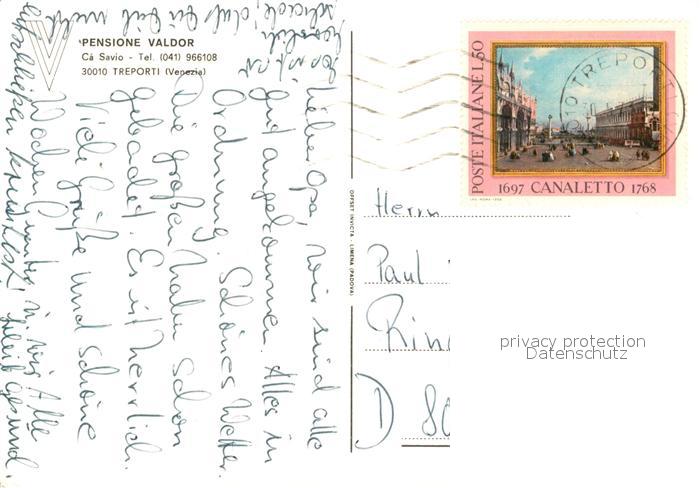 PENSIONE VALDOR
Cá Savio - Tel. (041) 966108
30010 TREPORTI (Venezia)
Lieber Opa, wir sind alle
gut angekommen. Alles in
Ordnung. Schönes Wetter.
Die großen haben schon
gebadet. Es ist herrlich.
Viele Grüße und schöne
Wochen
Alle
bleib gesund.
schade, daß Du
OFFSET INVICTA - LIMENA (PADOVA)
POSTE ITALIANE L.50
1697 CANALETTO 1768
TREPORTI
Herrn
Paul
D 80
privacy protection
Datenschutz